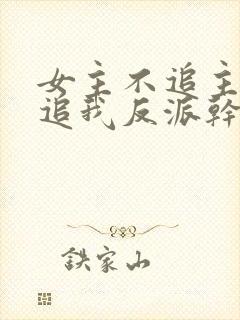 女主不追主
追我反派幹
鉄家山